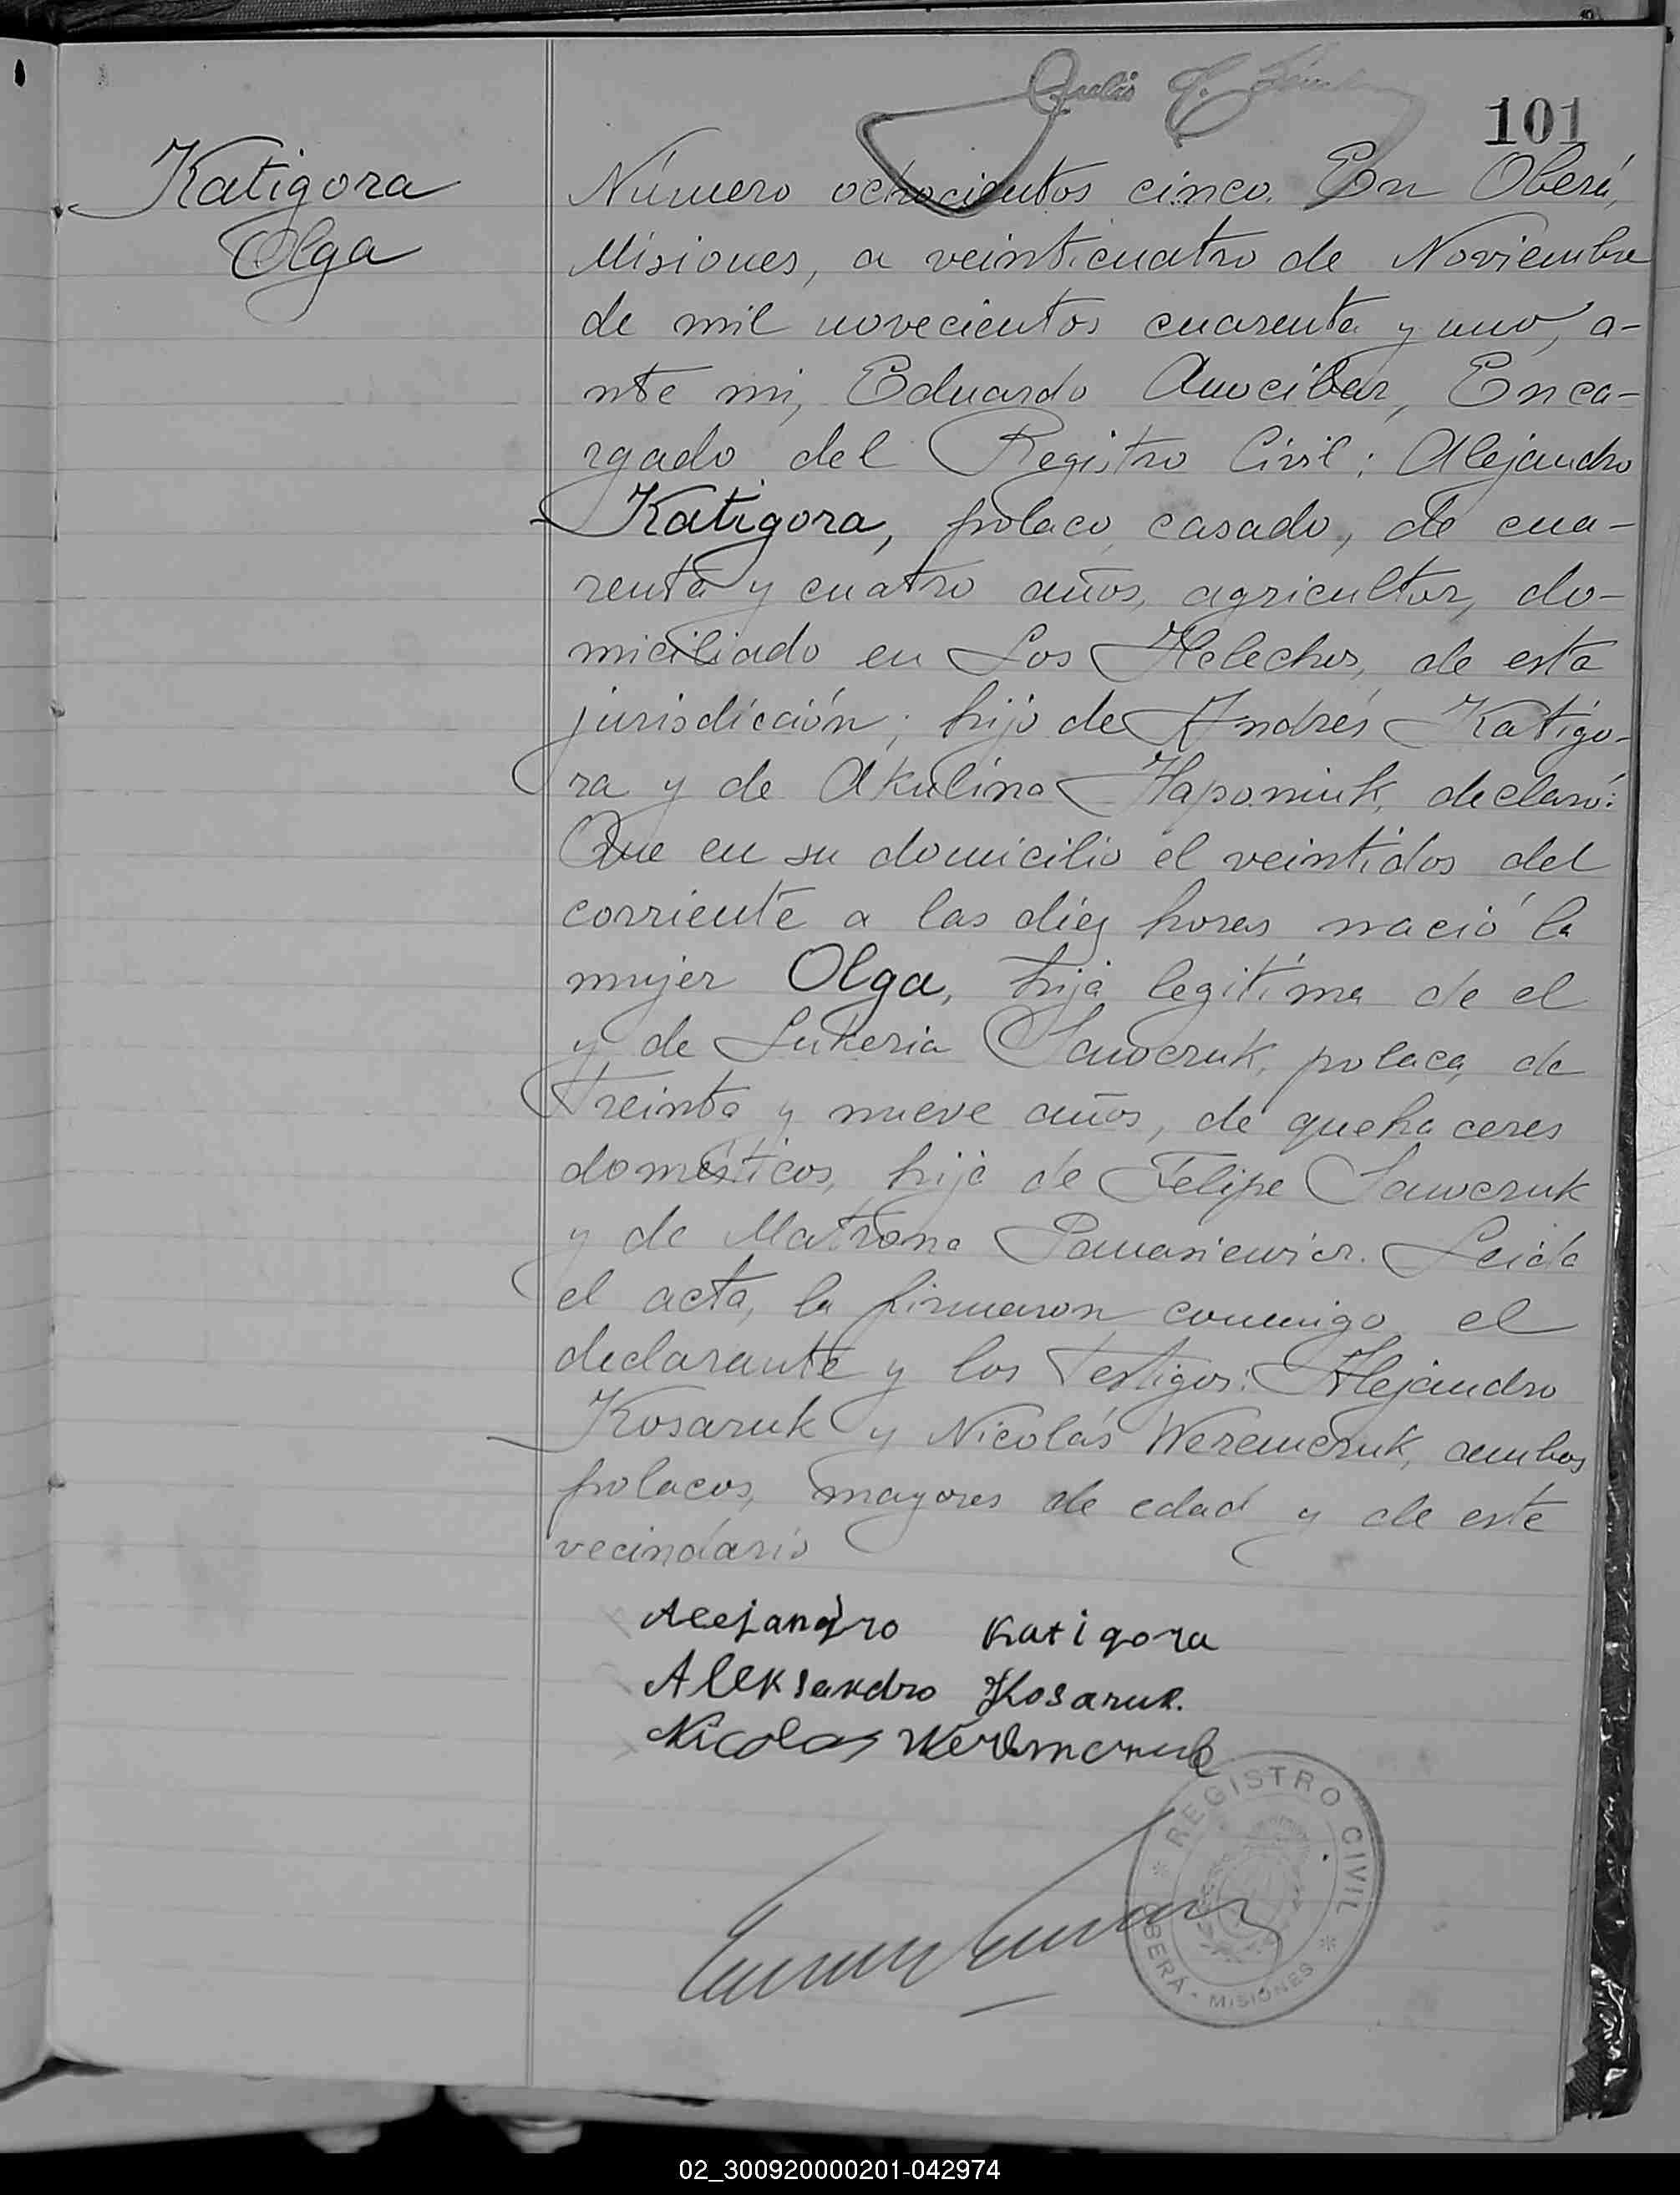 101
Katigora
Olga
Número ochocientos cinco. En Oberá,
Misiones, a veinticuatro de Noviembre
de mil novecientos cuarenta y uno, a-
nte mi, Eduardo Anocibar, Enca-
rgado del Registro Civil; Alejandro
Katigora, polaco, casado, de cua-
renta y cuatro años, agricultor, do-
miciliado en Los Helechos, de esta
jurisdicción; hijo de Andrés Katigo-
ra y de Akulina Haponiuk, declaró:
Que en su domicilio el veintidos del
corriente a las diez horas nació la
mujer Olga, hija legitima de el
y de Lukeria Sawczuk, polaca, de
treinta y nueve años, de quehaceres
domésticos, hija de Felipe Sawczuk
y de Matrona Panasiewicz. Leida
el acta, la firmaron conmigo el
declarante y los testigos: Alejandro
Kosaruk y Nicolás Weremczuk, ambos
polacos, mayores de edad y de este
vecindario
Alejandro Katigora
Aleksandro Kosaruk.
Nicolas Weremczuk
REGISTRO CIVIL
OBERÁ - MISIONES
02_300920000201-042974